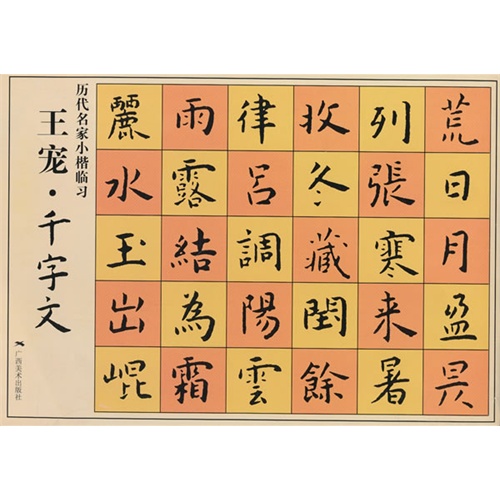 荒日月盈昃
列張寒来暑
收冬藏閏餘
律呂調陽雲
雨露結為霜
麗水玉出崐
历代名家小楷临习
王宠·千字文
广西美术出版社